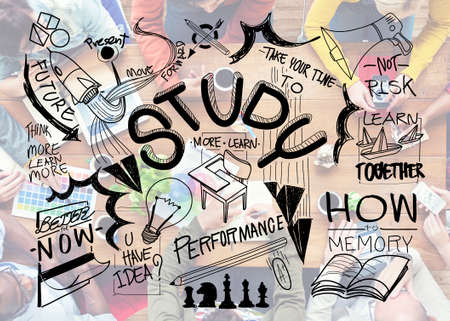 Present
FUTURE
MOVE
FORWARD
TAKE YOUR TIME
TO
STUDY
NOT
RISK
THINK
MORE
LEARN
MORE
MORE LEARN
LEARN
TOGETHER
BETTER
NOW
U
HAVE
IDEA?
PERFORMANCE
HOW
TO
MEMORY